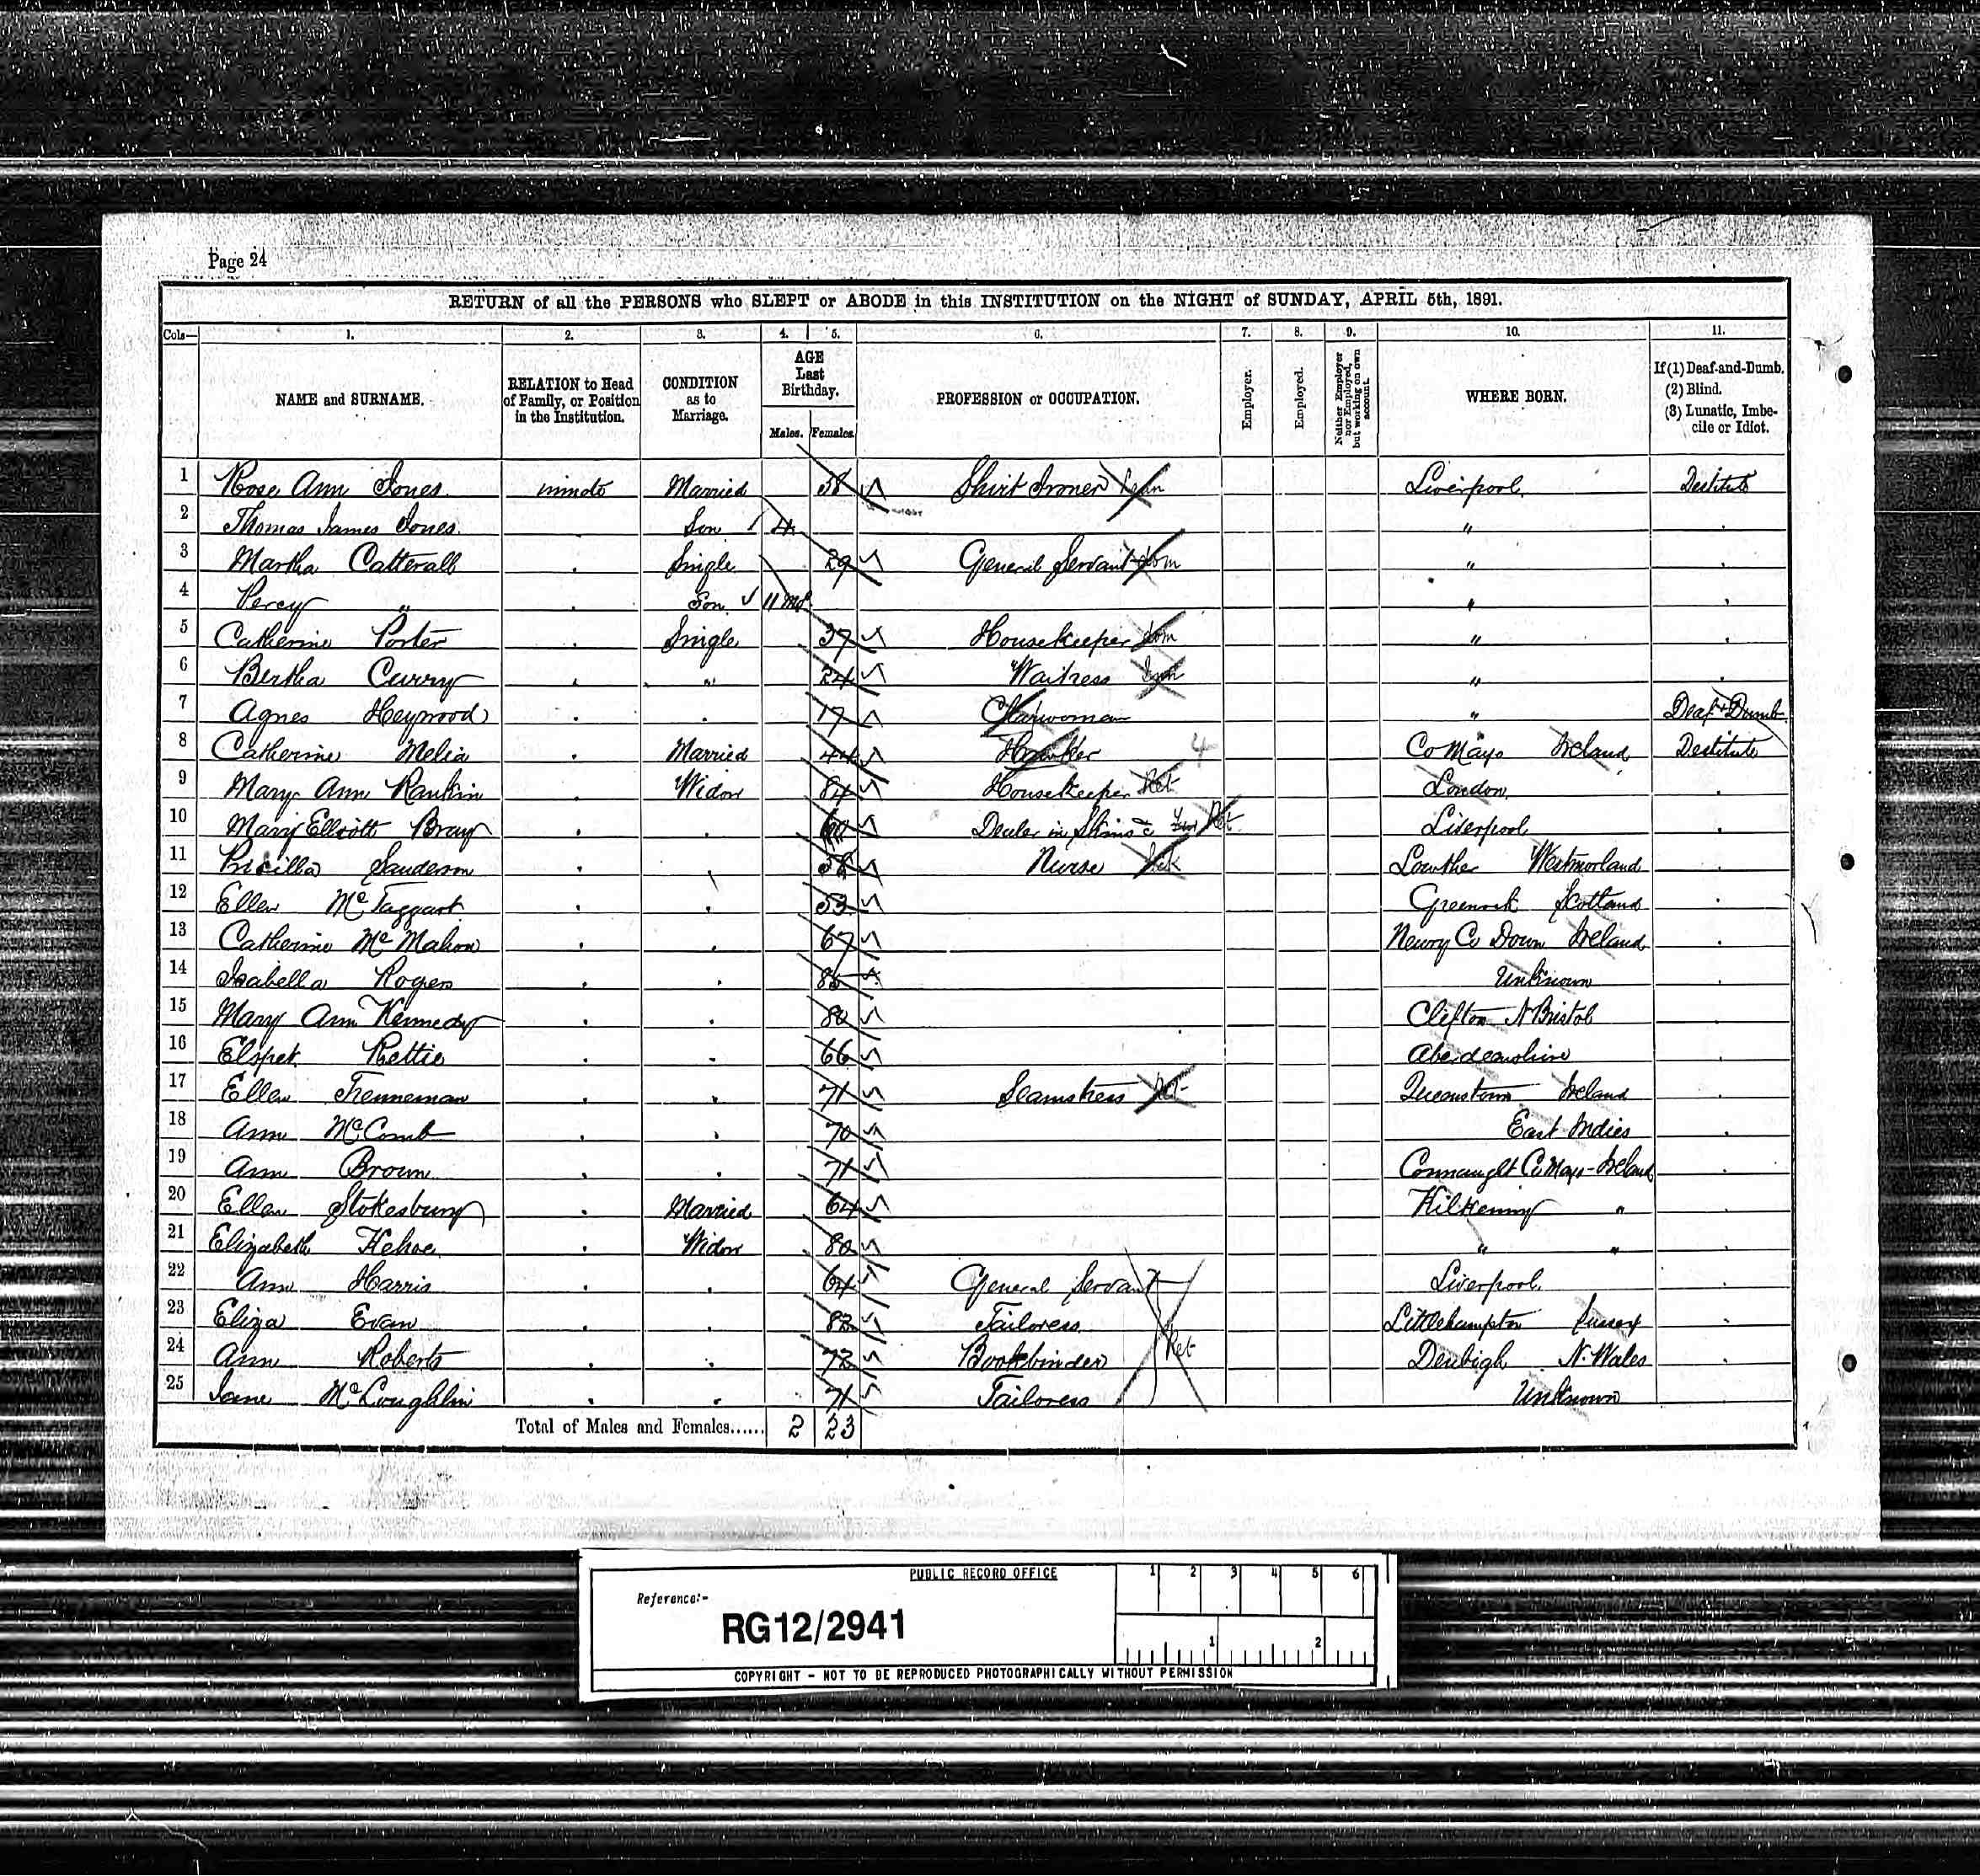 Page 24
RETURN of all the PERSONS who SLEPT or ABODE in this INSTITUTION on the NIGHT of SUNDAY, APRIL 5th, 1891.
Cols— 1. 2. 3. 4. 5. 6. 7. 8. 9. 10. 11.
NAME and SURNAME. RELATION to Head of Family, or Position in the Institution. CONDITION as to Marriage. AGE Last Birthday. Males. Females. PROFESSION or OCCUPATION. Employer. Employed. Neither Employer nor Employed, but working on own account. WHERE BORN. If (1) Deaf-and-Dumb. (2) Blind. (3) Lunatic, Imbecile or Idiot.
1 Rose Ann Jones inmate Married 38 Shirt Ironer Liverpool Destitute
2 Thomas James Jones . Son 4 " .
3 Martha Catterall . Single 29 General Servant Dom " .
4 Percy " . Son 11 Mos " .
5 Catherine Porter . Single 37 Housekeeper Dom " .
6 Bertha Curry . " 24 Waitress Inn " .
7 Agnes Heywood . . 17 Charwoman " Deaf + Dumb
8 Catherine Melia . Married 44 Hawker 4 Co Mayo Ireland Destitute
9 Mary Ann Rankin . Widow 84 Housekeeper Ret London
10 Mary Elliott Bray . . Dealer in Skins &c Ret Liverpool .
11 Pricilla Sanderson . 58 Nurse Sick Lowther Westmorland .
12 Ellen McTaggart . . 53 Greenock Scotland .
13 Catherine McMahon . . 67 Newry Co Down Ireland .
14 Isabella Rogers . . 85 Unknown .
15 Mary Ann Kennedy . . 80 Clifton N Bristol .
16 Elspet Rettie . . 66 Aberdeenshire .
17 Ellen Trenneman . . 71 Seamstress Ret Queenstown Ireland .
18 Ann McComb . . 70 East Indies .
19 Ann Brown . . 71 Connaught Co Mayo - Ireland .
20 Ellen Stokesbury . Married 64 Kilkenny " .
21 Elizabeth Kehoe . Widow 80 " " .
22 Ann Harris . . 64 General Servant Liverpool .
23 Eliza Evan . . 82 Tailoress Littlehampton Sussex .
24 Ann Roberts . . 72 Bookbinder Ret Denbigh N. Wales .
25 Jane McLoughlin . . 71 Tailoress Unknown .
Total of Males and Females...... 2 23
PUBLIC RECORD OFFICE 1 2 3 4 5 6
Reference:-
RG12/2941
1 2
COPYRIGHT - NOT TO BE REPRODUCED PHOTOGRAPHICALLY WITHOUT PERMISSION